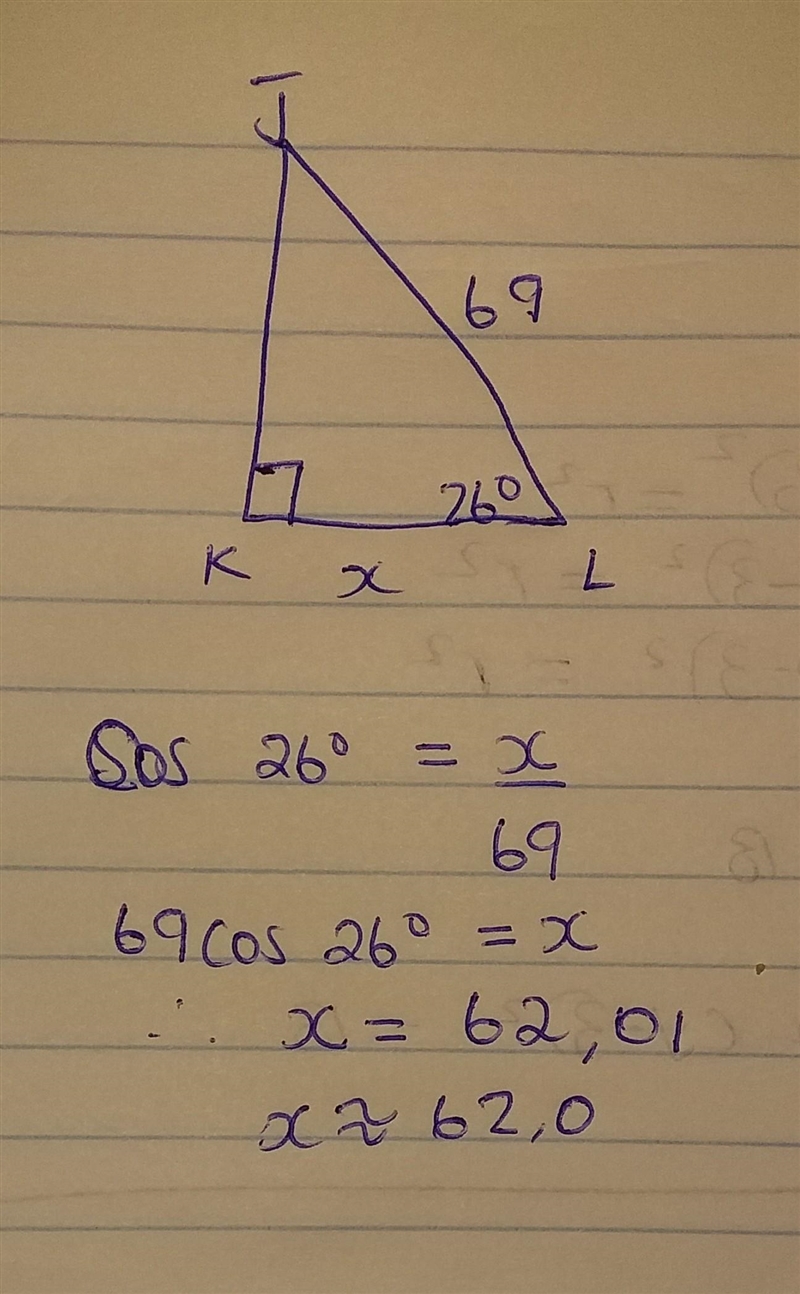 J
69
26°
K x L
Cos 26° = x
69
69cos 26° = x
∴ x = 62,01
x ≈ 62,0